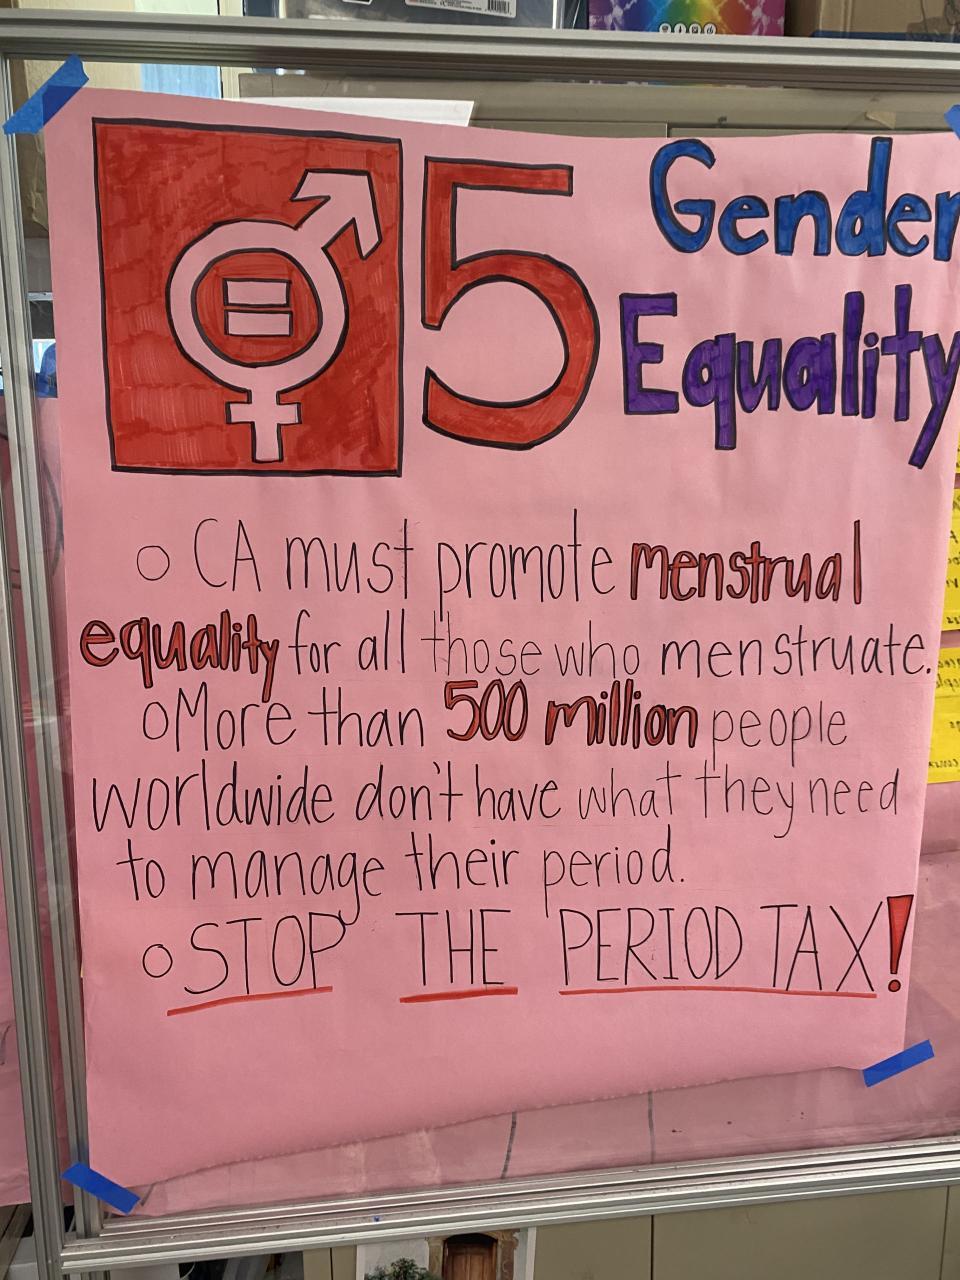 5 Gender
Equality
○ CA must promote menstrual
equality for all those who menstruate.
○ More than 500 million people
worldwide don't have what they need
to manage their period.
○ STOP THE PERIOD TAX!